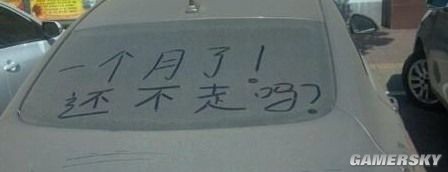 一个月了！
还不走吗？
GAMERSKY